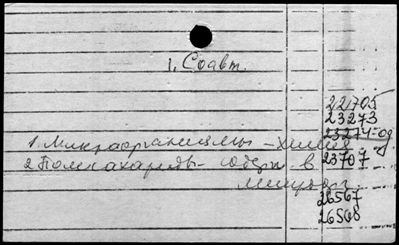 1. Соавт.
22705
23273
23274-од
1. Микроорганизмы - химия
23707
2. Полисахариды - содерж. в
26567
26568